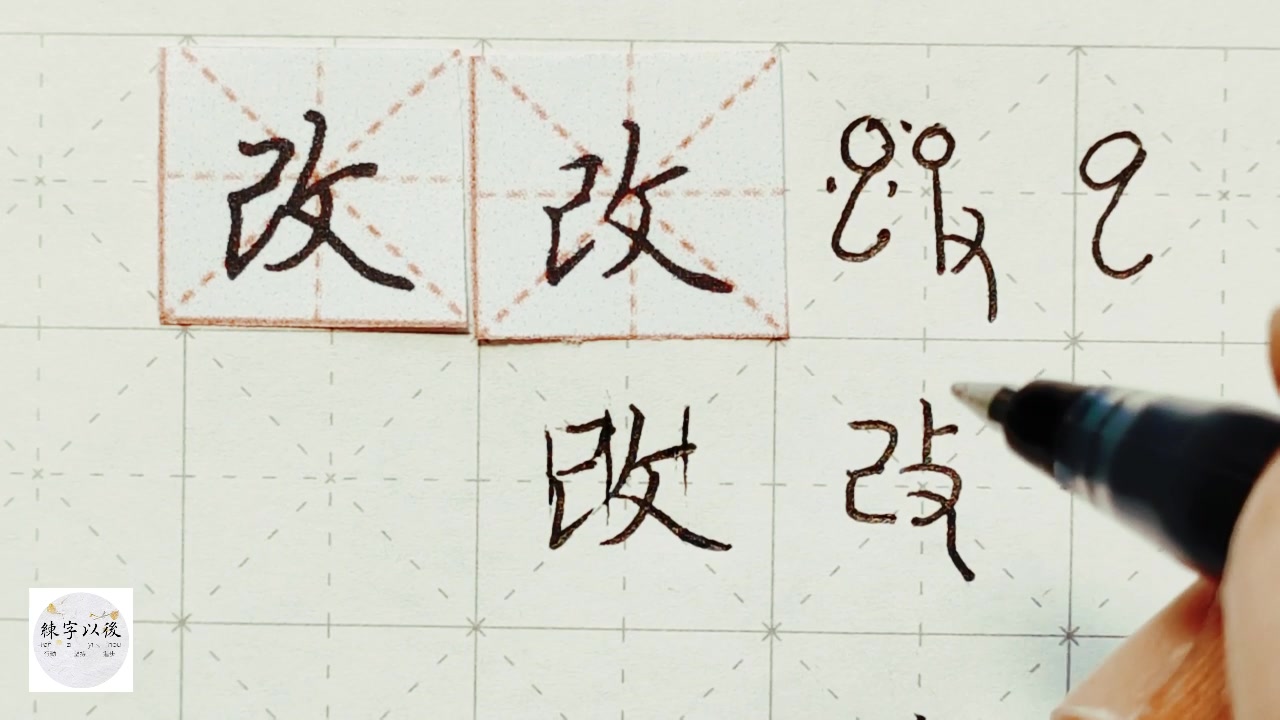 改 改
改 改
練字以後